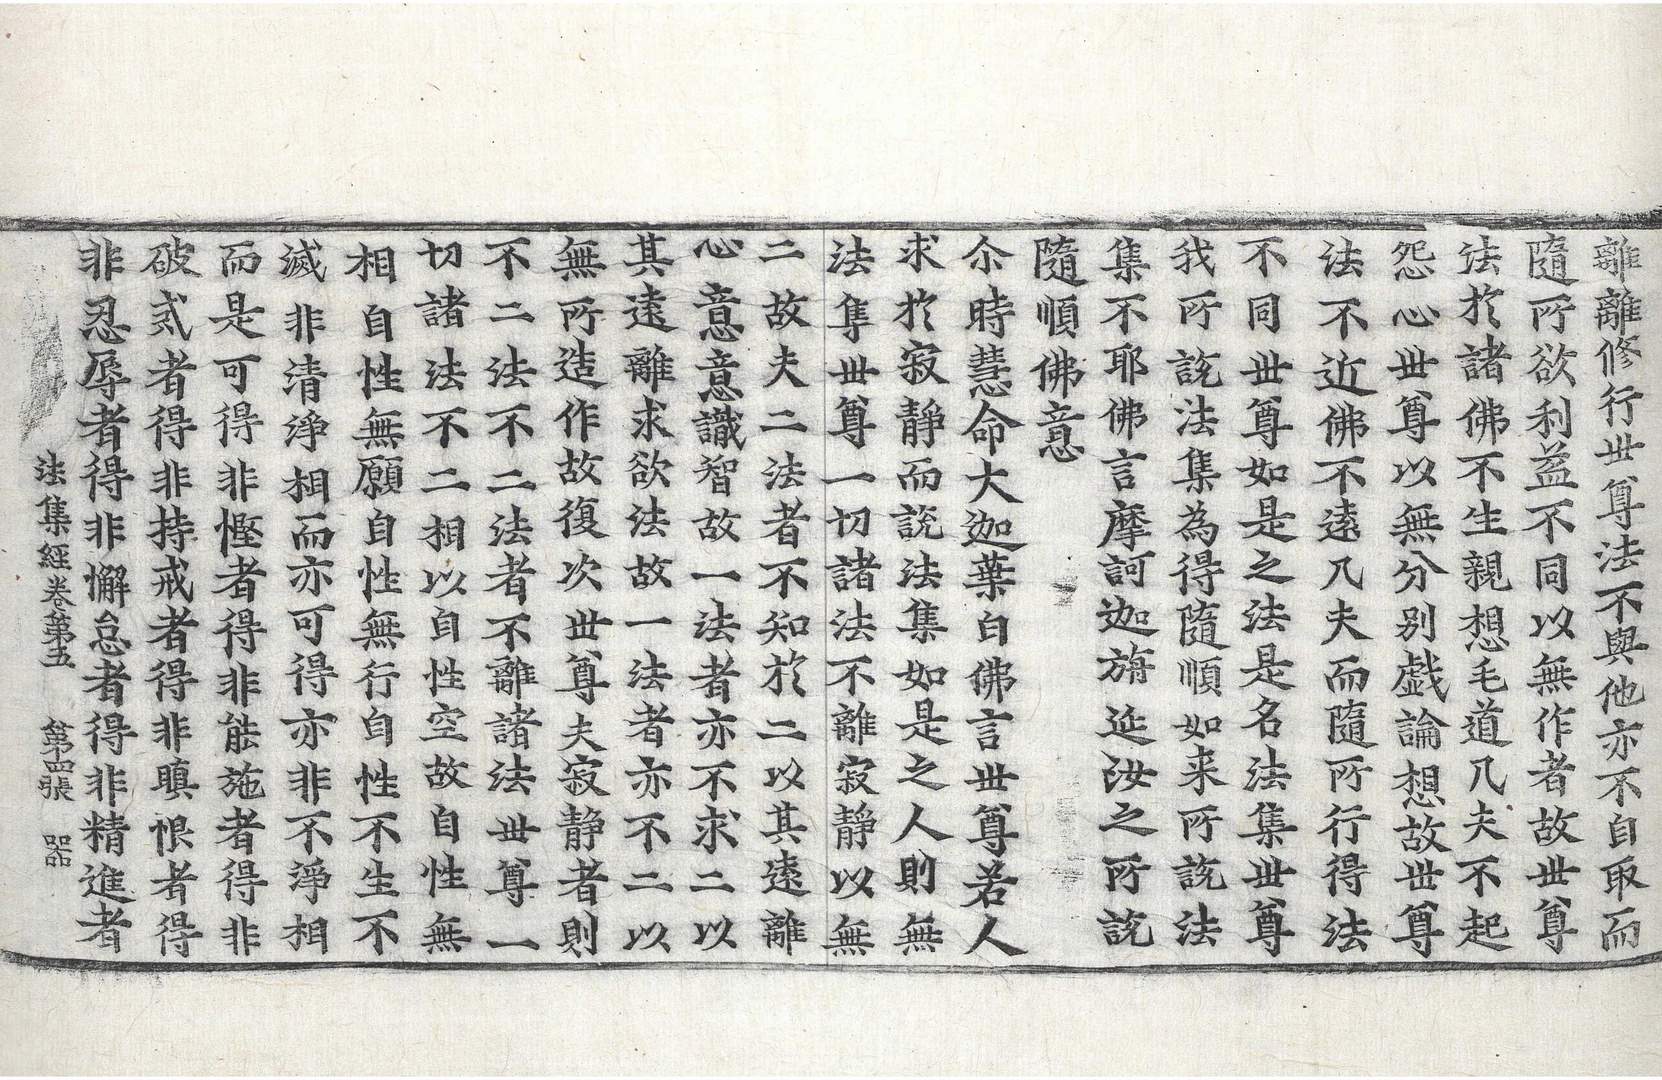 離離修行世尊法不與他亦不自取而
隨所欲利益不同以無作者故世尊
法於諸佛不生親想毛道凡夫不起
怨心世尊以無分别戲論想故世尊
法不近佛不遠凡夫而隨所行得法
不同世尊如是之法是名法集世尊
我所說法集為得隨順如来所說法
集不耶佛言摩訶迦旃延汝之所說
隨順佛意
尒時慧命大迦葉白佛言世尊若人
求於寂靜而說法集如是之人則無
法集世尊一切諸法不離寂靜以無
二故夫二法者不知於二以其遠離
心意意識智故一法者亦不求二以
其遠離求欲法故一法者亦不二以
無所造作故復次世尊夫寂靜者則
不二法不二法者不離諸法世尊一
切諸法不二相以自性空故自性無
相自性無願自性無行自性不生不
滅非清淨相而亦可得亦非不淨相
而是可得非慳者得非能施者得非
破戒者得非持戒者得非瞋恨者得
非忍辱者得非懈怠者得非精進者
法集經卷第五 第四張 器